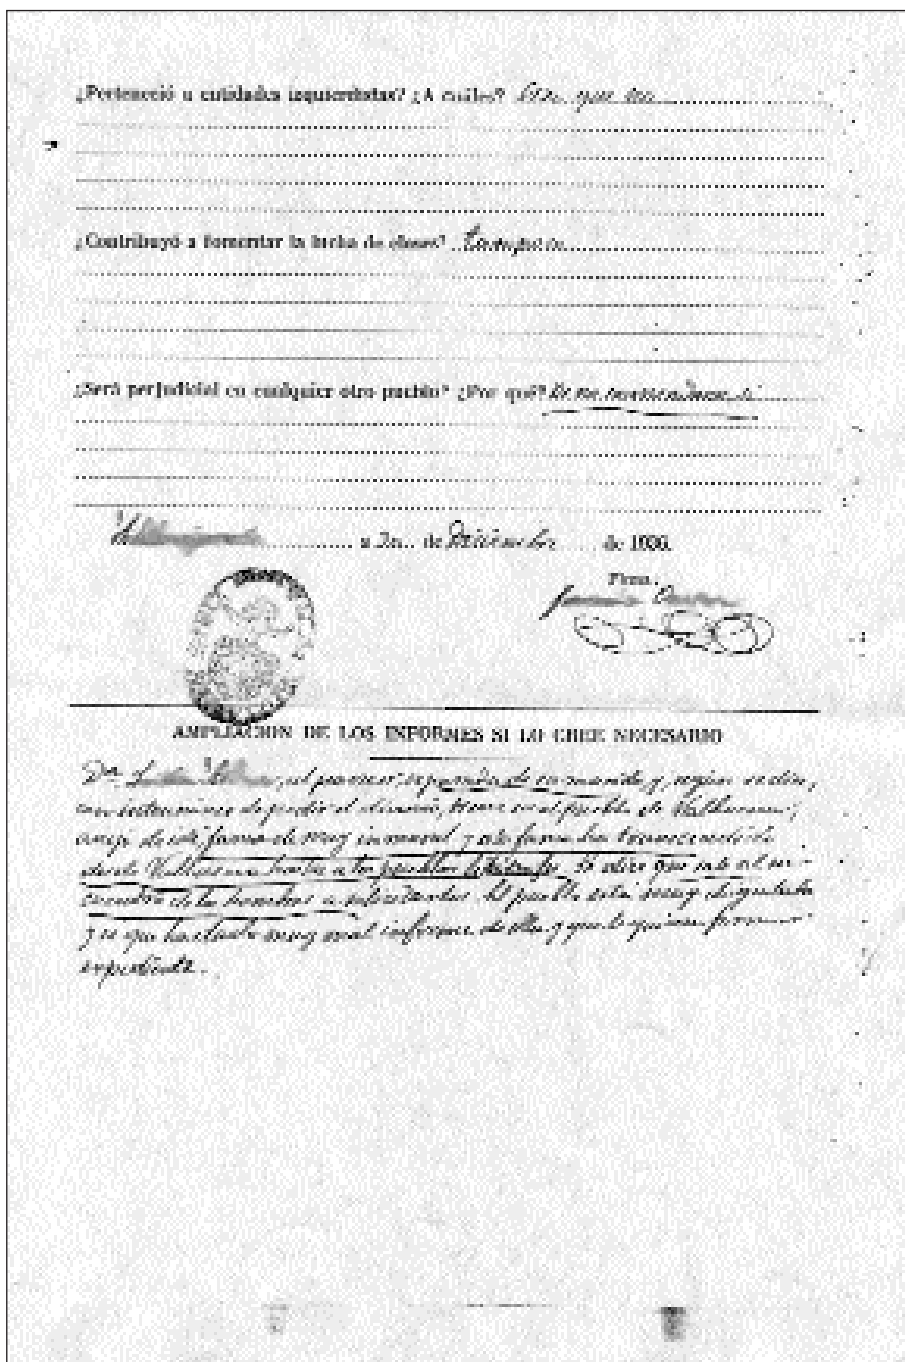 ¿Perteneció a entidades izquierdistas? ¿A cuáles? Creo que no
¿Contribuyó a fomentar la lucha de clases? Tampoco
¿Será perjudicial en cualquier otro pueblo? ¿Por qué? si
a de Diciembre de 1936.
Firma,
AMPLIACION DE LOS INFORMES SI LO CREE NECESARIO
Dª, al parecer separada de su marido y, según
de pedir el divorcio, tiene en el pueblo de
fama de muy inmoral y esta fama ha trascendido
desde hasta a los pueblos limítrofes. Se dice que sale al en-
cuentro de los hombres. El pueblo está muy disgustado
y se que han dado muy mal informe de ella y que le quieren formar
expediente.